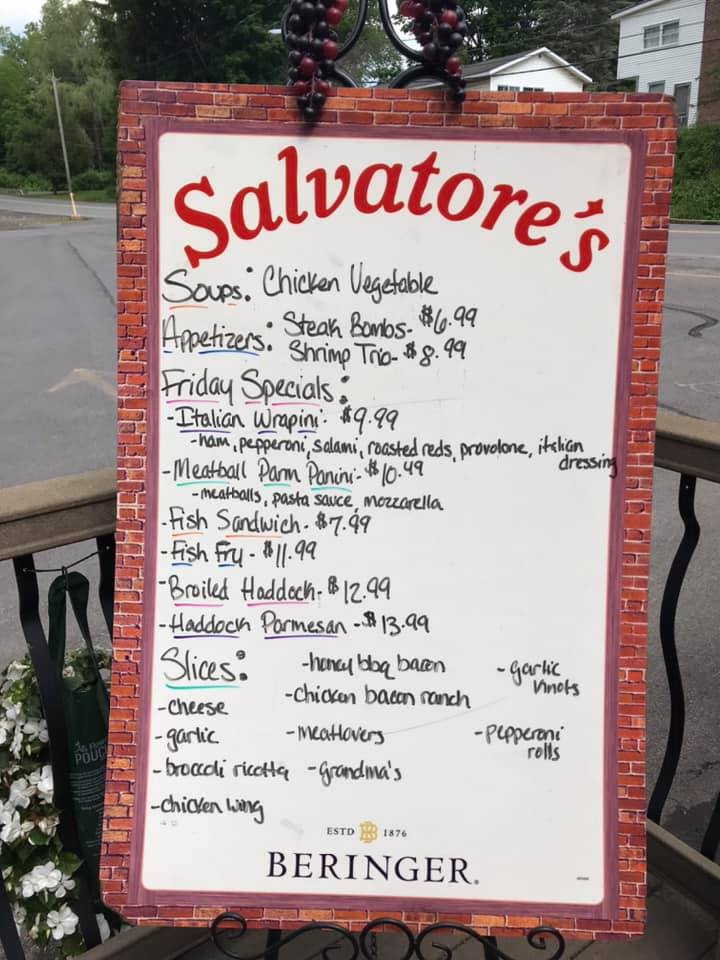 Salvatore's
Soups: Chicken Vegetable
Appetizers: Steak Bombs- $6.99
Shrimp Trio- $8.99
Friday Specials:
-Italian Wrapini- $9.99
-ham, pepperoni, salami, roasted reds, provolone, italian
dressing
-Meatball Parm Panini- $10.49
-meatballs, pasta sauce, mozzarella
-Fish Sandwich- $7.99
-Fish Fry- $11.99
-Broiled Haddock- $12.99
-Haddock Parmesan -$13.99
Slices:
-honey bbq bacon
-garlic
knots
-chicken bacon ranch
-cheese
-garlic
-meatlovers
-pepperoni
rolls
-broccoli ricotta
-grandma's
-chicken wing
ESTD BB 1876
BERINGER.